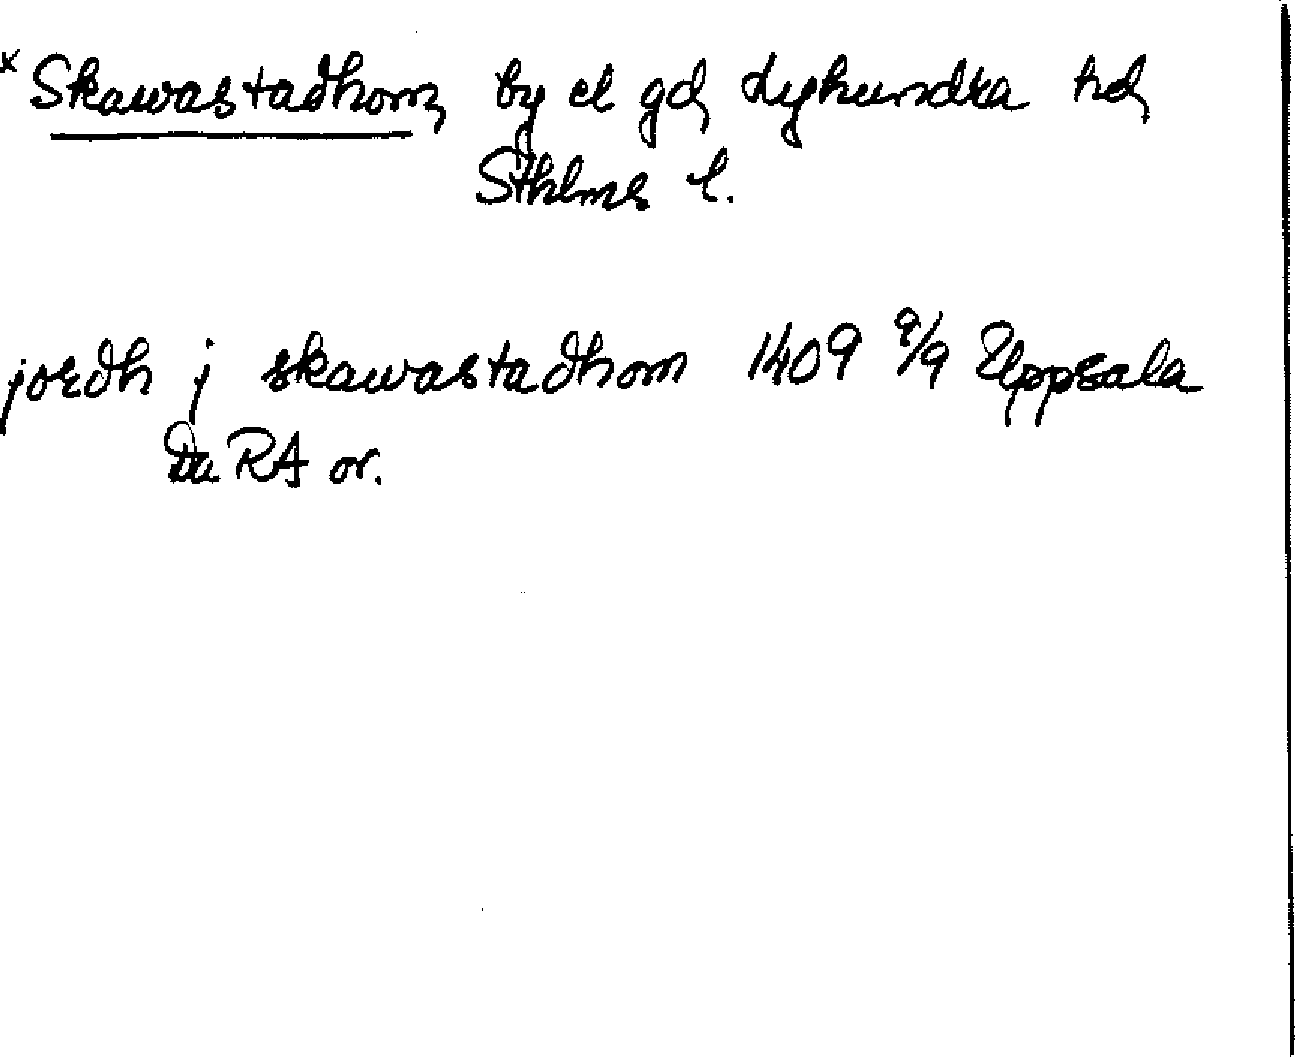 * Skawastadhom, by el gd, Lyhundra hd,
Sthlms l.
jordh j skawastadhom 1409 9/9 Uppsala
Da RA or.